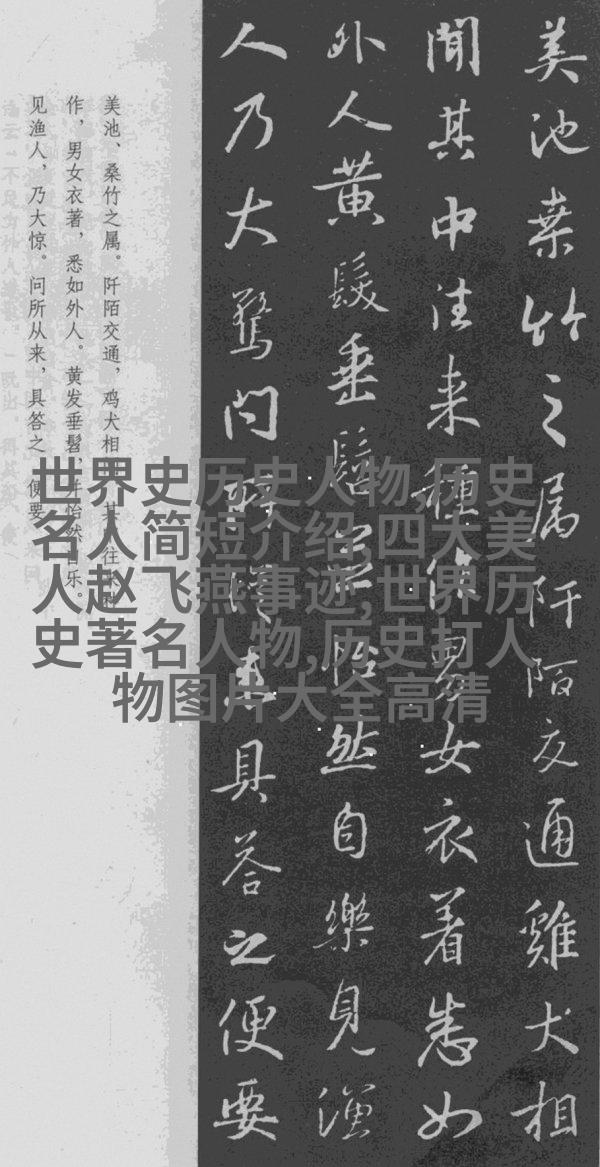 美池桒竹之属阡陌交通雞犬相
聞其中往来種作男女衣着悉如
外人黄髮垂髫并怡然自樂見漁
人乃大驚问所從来具答之便要
美池、桑竹之属。阡陌交通，鸡犬相 其 往
作，男女衣著，悉如外人。黄发垂髫，并怡然自乐。
见渔人，乃大惊。问所从来，具答之。便要
世界史历史人物,历史
名人简短介绍,四大美
人赵飞燕事迹,世界历
史著名人物,历史打人
物图片大全高清